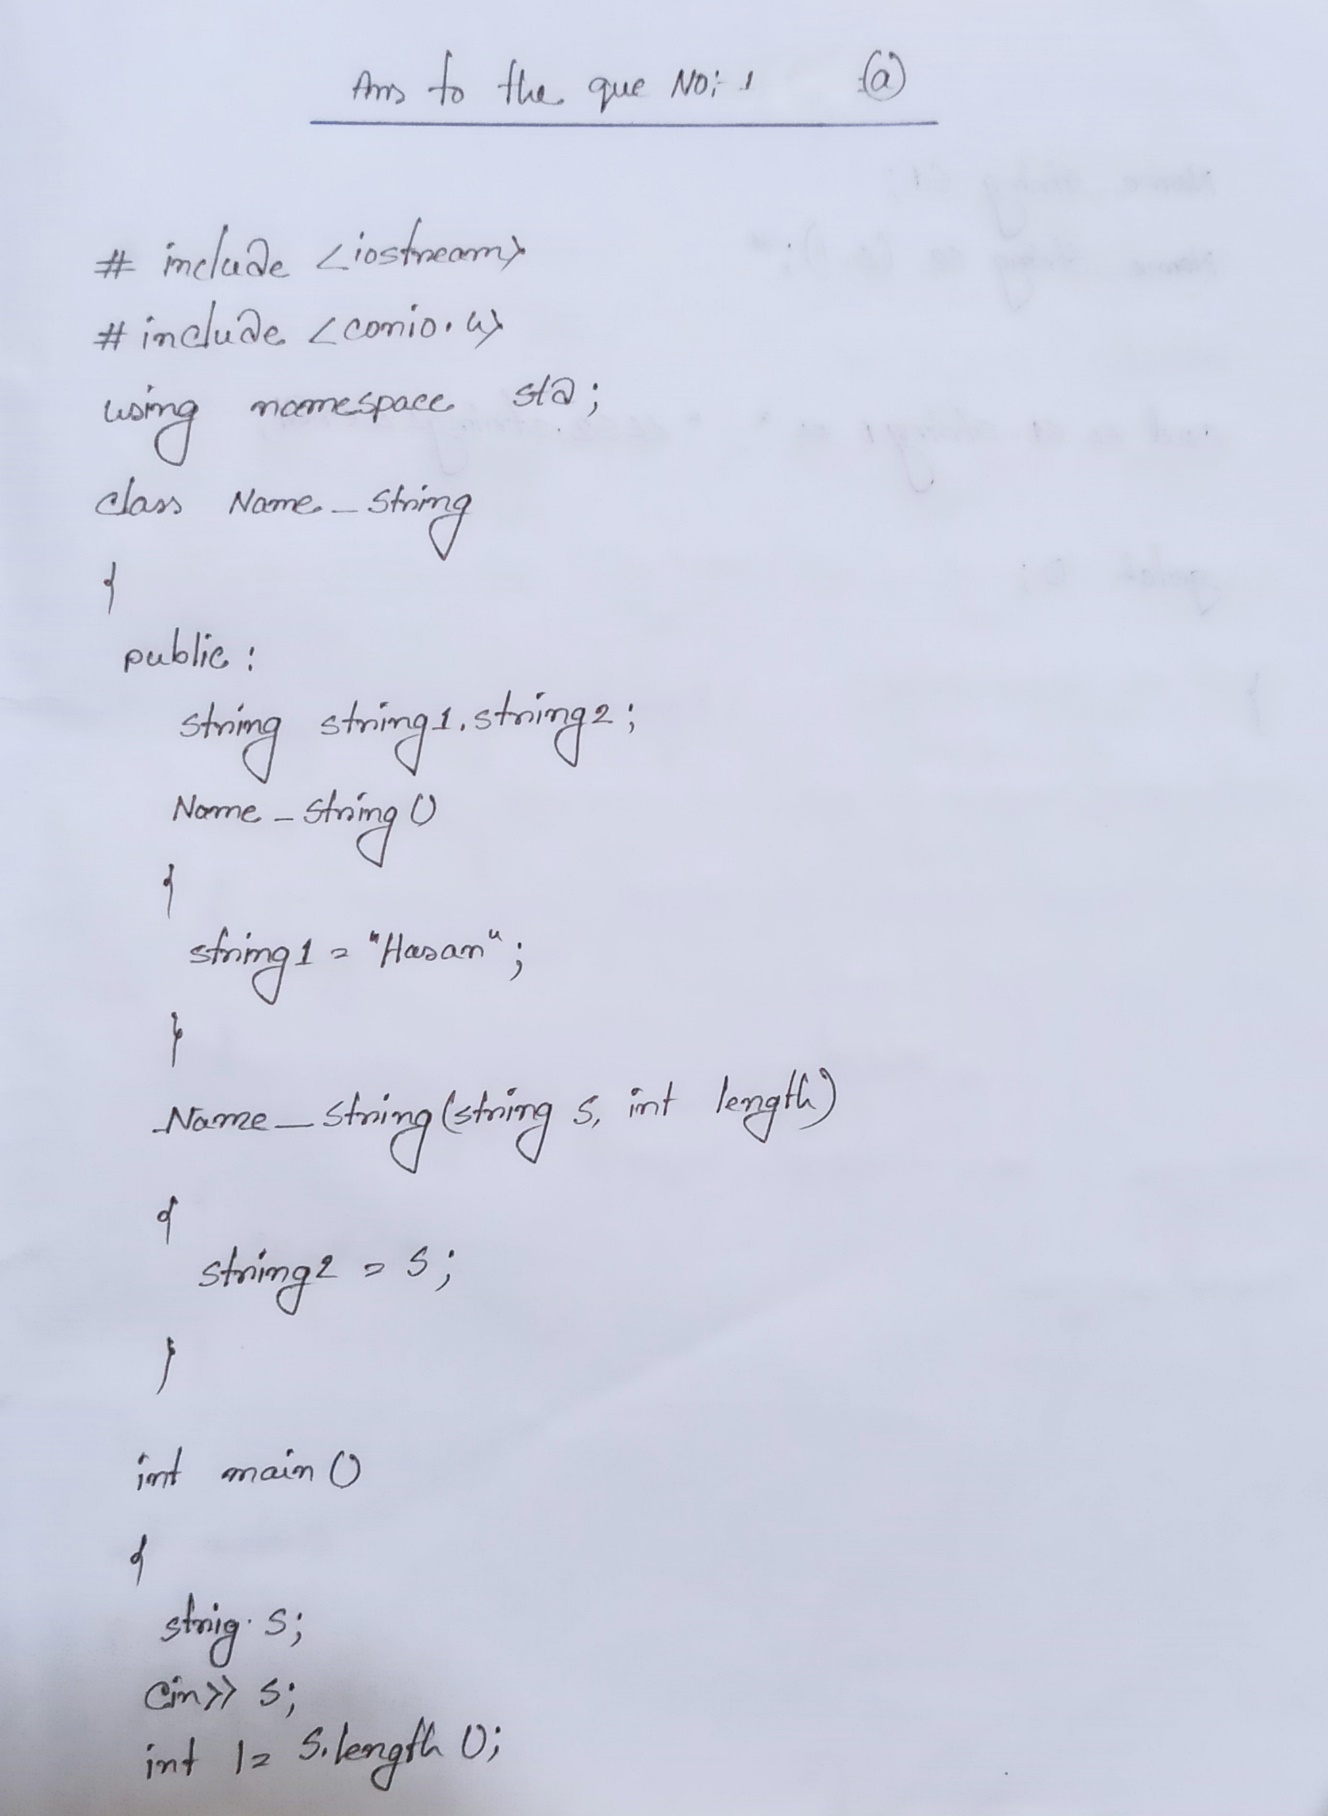 Ans to the que No: 1 (a)
# include <iostream>
# include <conio.h>
using namespace std;
class Name_String
{
public:
string string1, string2;
Name_String()
{
string1 = "Hasan";
}
Name_String(string s, int length)
{
string2 = s;
}
int main()
{
strig s;
cin>> s;
int l = s.length();